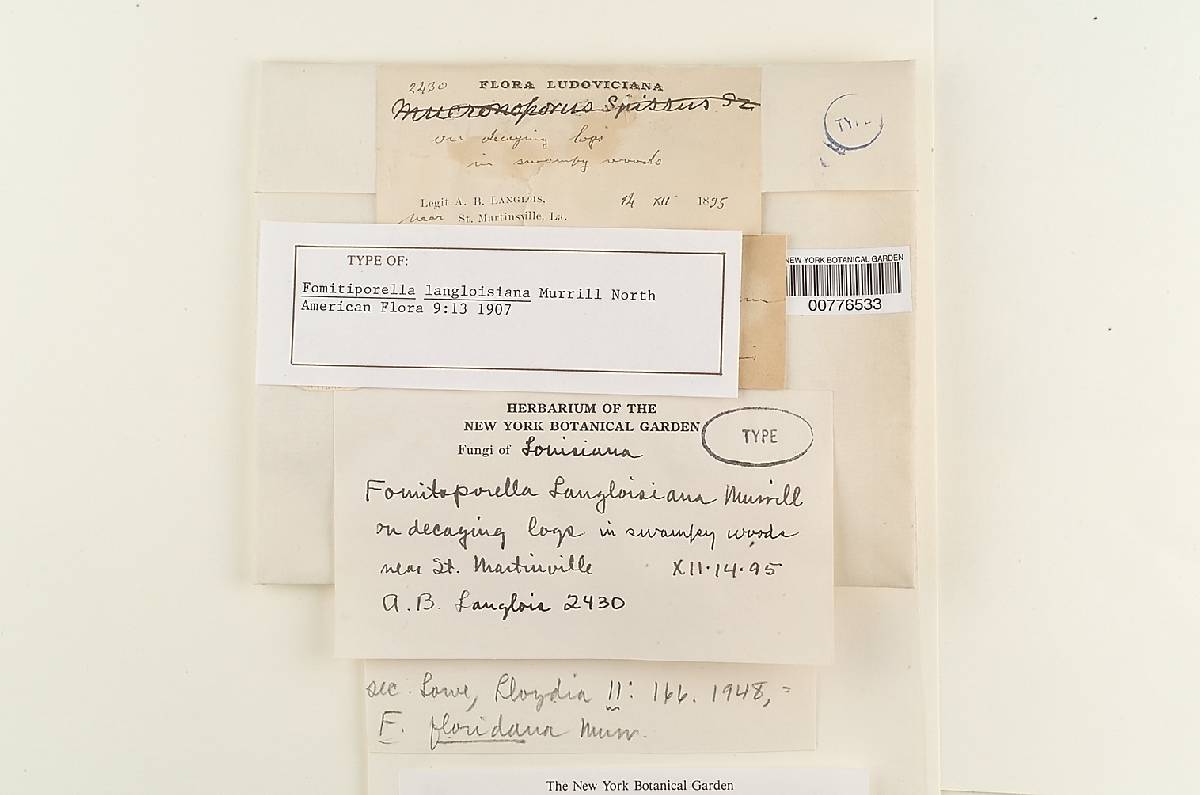 2430 FLORA LUDOVICIANA
Mucronoporus Spissus Fr
on decaying logs
in swampy woods
Legit A. B. LANGLOIS, 14 XII 1895
near St. Martinsville, La.
TYPE
TYPE OF:
Fomitiporella langloisiana Murrill North
American Flora 9:13 1907
NEW YORK BOTANICAL GARDEN
00776533
HERBARIUM OF THE
NEW YORK BOTANICAL GARDEN
TYPE
Fungi of Louisiana
Fomitoporella Langloisiana Murrill
on decaying logs in swampy woods
near St. Martinville XII·14·95
A.B. Langlois 2430
sec. Lowe, Lloydia 11: 166. 1948, =
F. floridana Murr.
The New York Botanical Garden